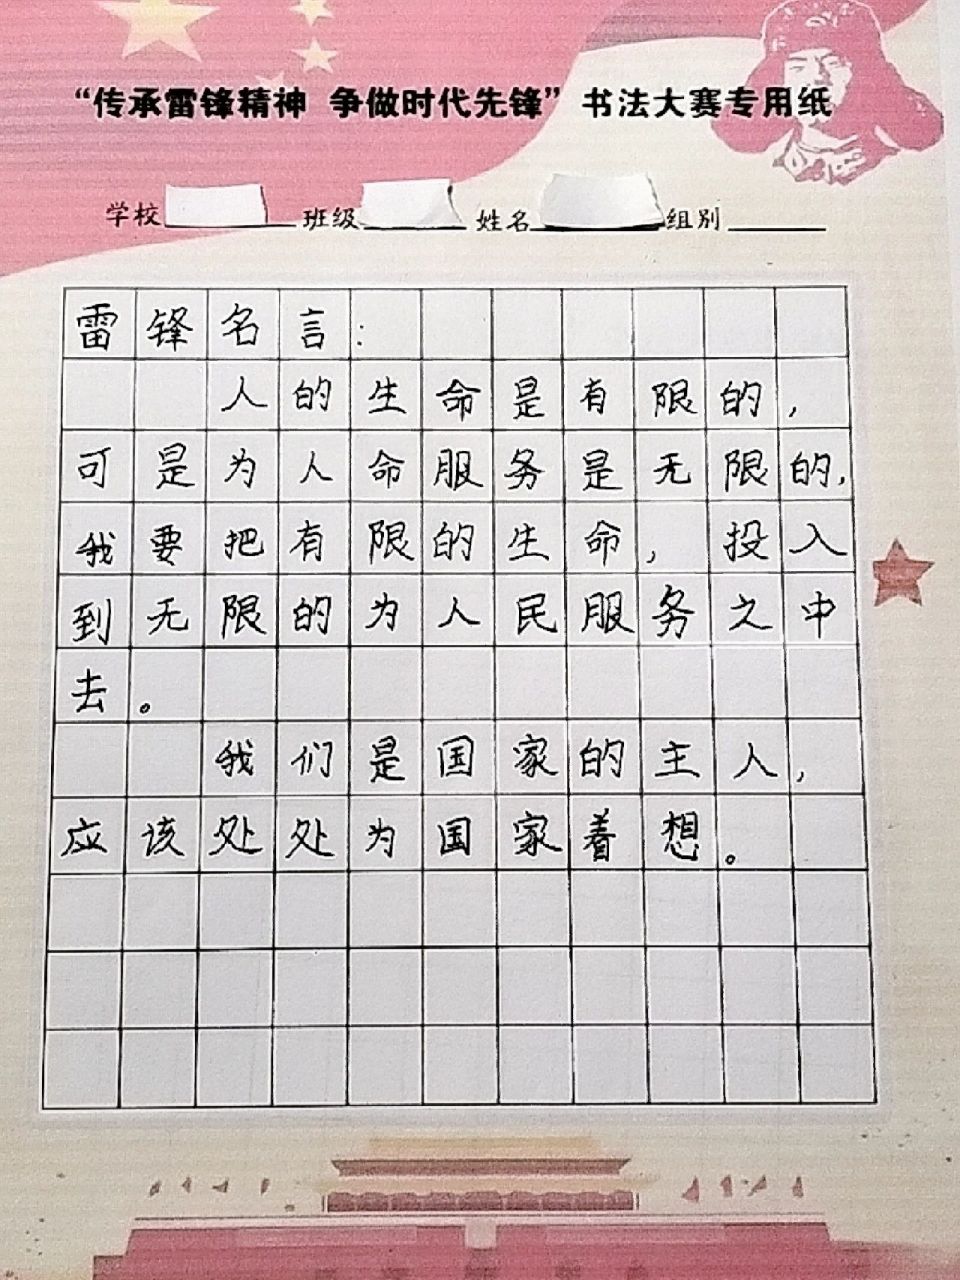 “传承雷锋精神 争做时代先锋”书法大赛专用纸
学校 班级 姓名 组别
雷锋名言：
人的生命是有限的，
可是为人命服务是无限的，
我要把有限的生命，投入
到无限的为人民服务之中
去。
我们是国家的主人，
应该处处为国家着想。